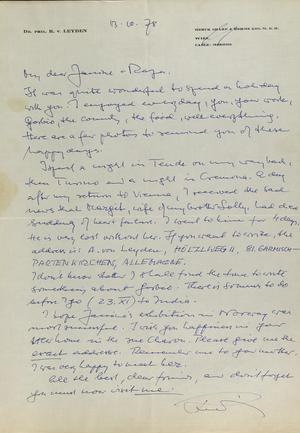 DR. PHIL. R. v. LEYDEN
13.10.78
MERCK SHARP & DOHME GES. M. B. H.
WIEN
CABLE: MERDOH
My dear Janine + Raza.
It was quite wonderful to spend a holiday
with you. I enjoyed every day, you, your work,
Gorbio, the county, the food, well everything.
Here are a few photos to remind you of these
happy days.
I spent a night in Tende on my way back,
then Torino and a night in Cremona. A day
after my return to Vienna, I received the sad
news that Margit, wife of my brother Lolly, had died
suddenly of heart failure. I went to him for 4 days.
He is very lost without her. If you want to write, the
address is: A. von Leyden, HÖLZLWEG 11, 81. GARMISCH-
PARTENKIRCHEN, ALLEMAGNE.
I don't know whether I shall find the time to write
something about Gorbio. There is so much to do
before I go (23. XI) to India.
I hope Janine's exhibition in Norway was
most successful. I wish you happiness in your
new home in the rue Charonne. Please give me the
exact address. Remember me to your mother,
I was very happy to meet her.
All the best, dear friends, and don't forget
you must now visit me!